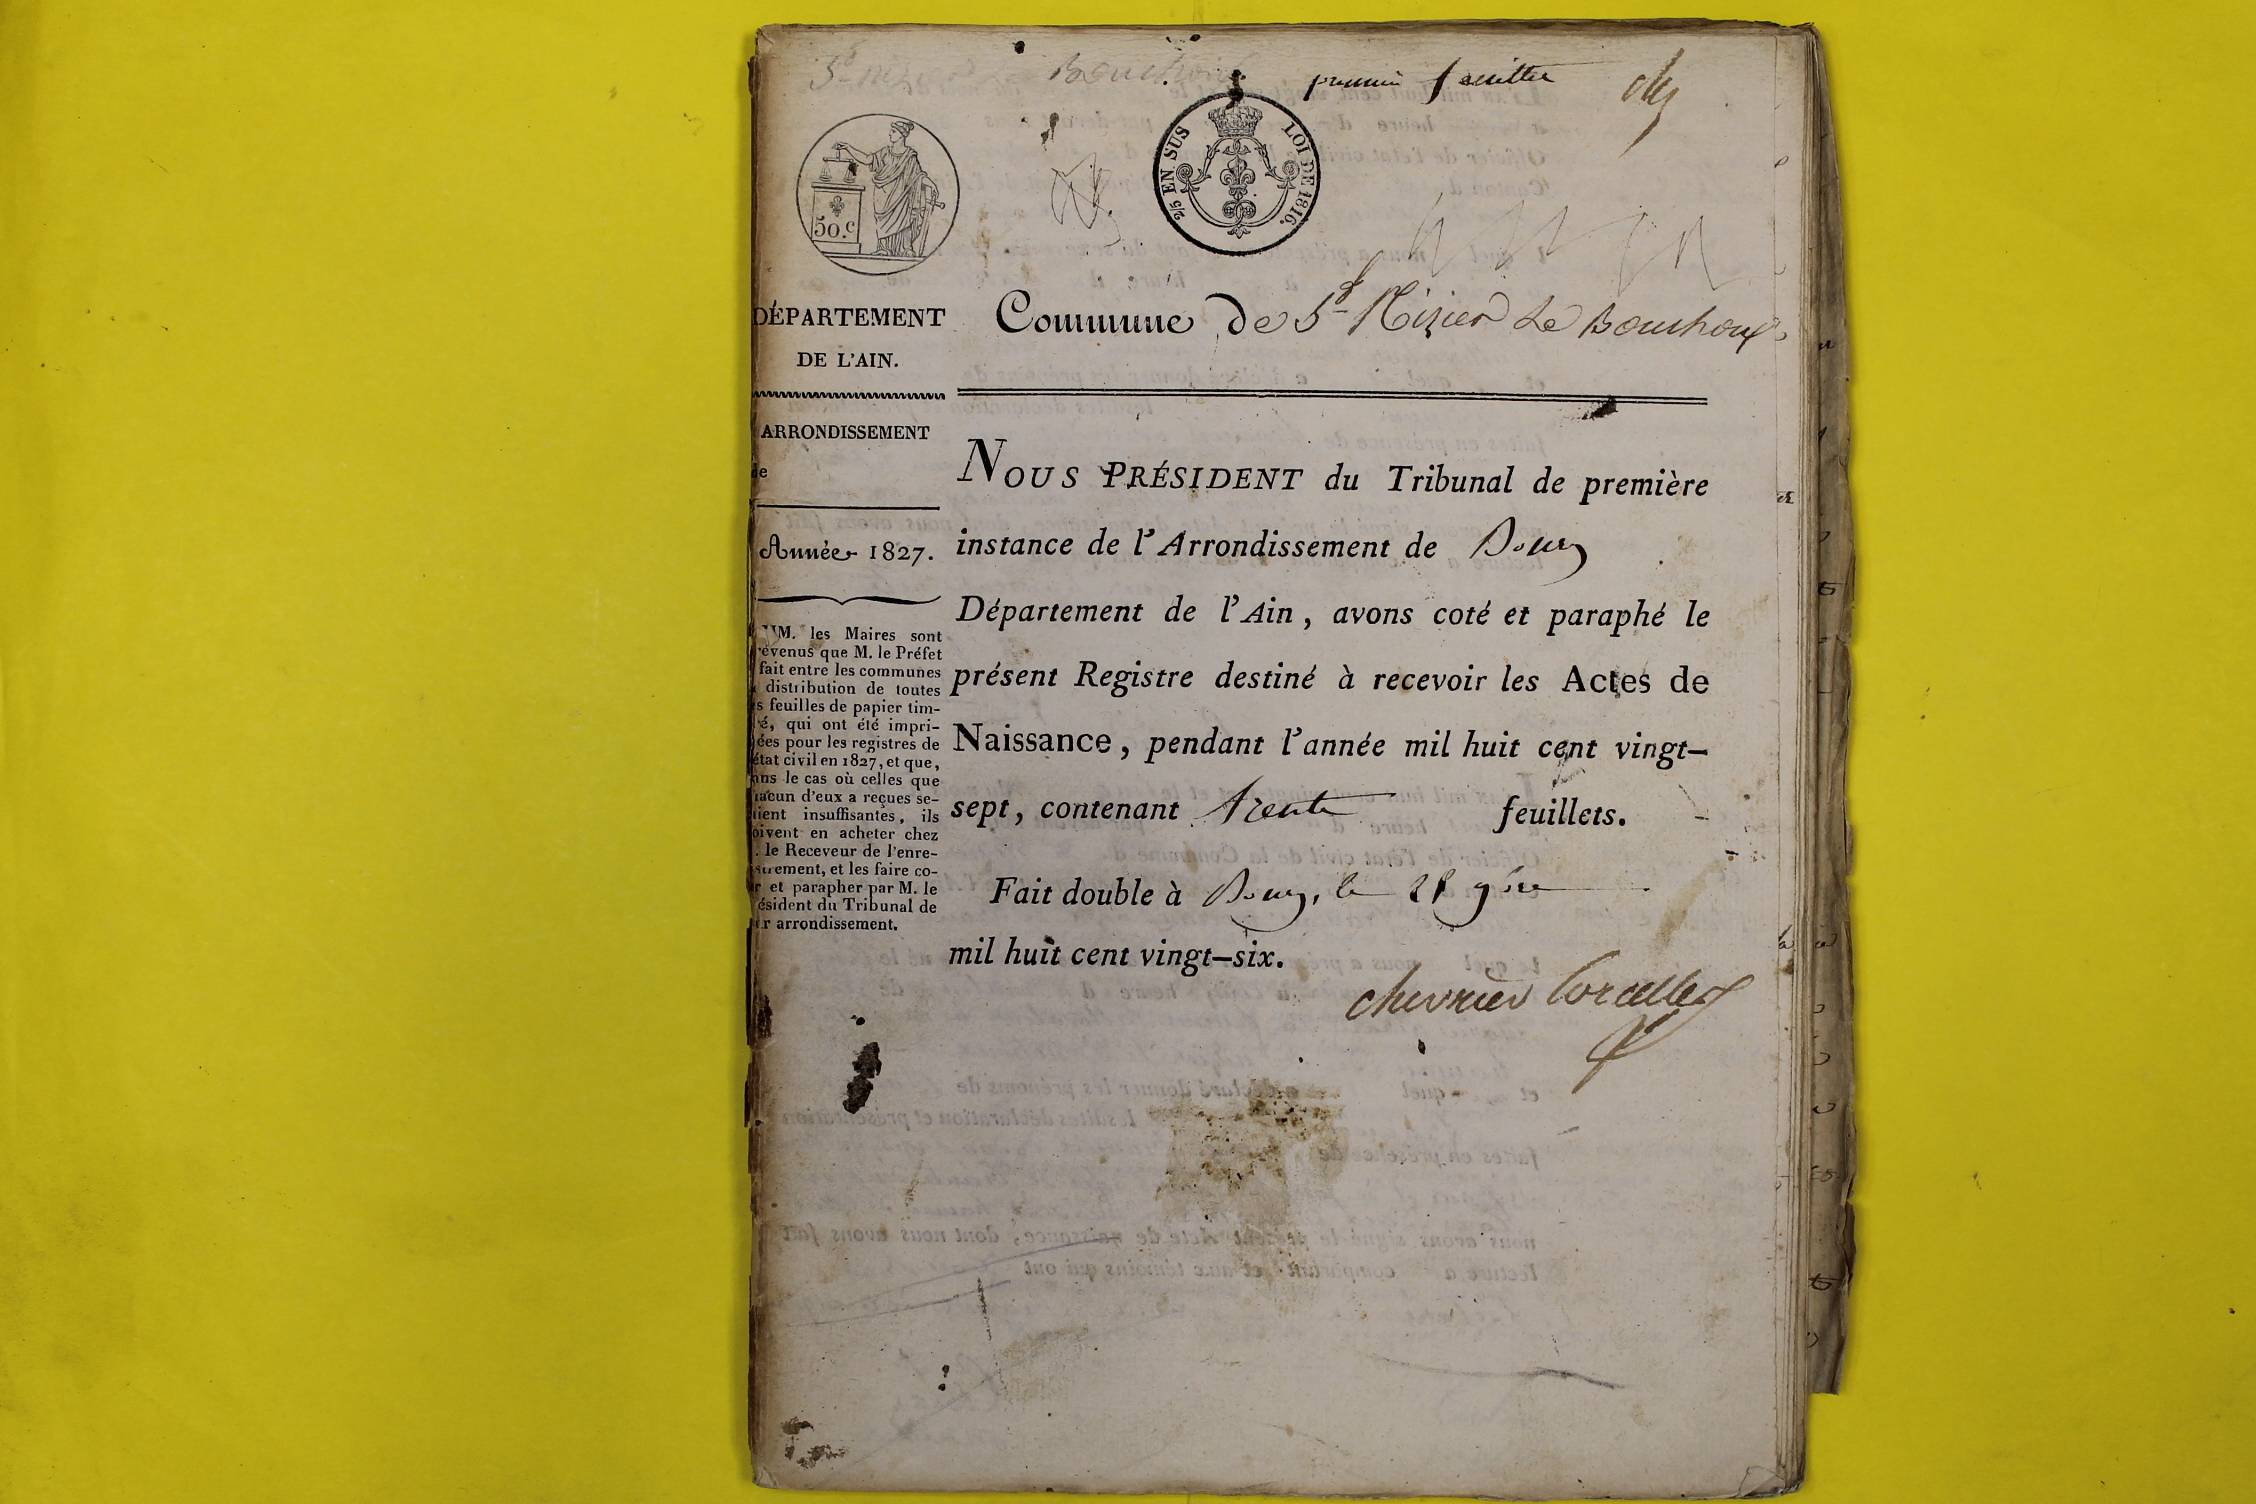 St Nizier Le Bouchoux
premier feuillet
2/5 EN SUS LOI DE 1816.
50.c
Commune de St Nizier Le Bouchoux
DÉPARTEMENT
DE L'AIN.
ARRONDISSEMENT
de
Année 1827.
MM. les Maires sont
révenus que M. le Préfet
fait entre les communes
distribution de toutes
s feuilles de papier tim-
é, qui ont été impri-
ées pour les registres de
état civil en 1827, et que,
ns le cas où celles que
acun d'eux a reçues se-
ient insuffisantes, ils
oivent en acheter chez
. le Receveur de l'enre-
strement, et les faire co-
r et parapher par M. le
ésident du Tribunal de
r arrondissement.
NOUS PRÉSIDENT du Tribunal de première
instance de l'Arrondissement de Bourg
Département de l'Ain, avons coté et paraphé le
présent Registre destiné à recevoir les Actes de
Naissance, pendant l'année mil huit cent vingt-
sept, contenant trente feuillets.
Fait double à Bourg, le 28 9bre
mil huit cent vingt-six.
chevrier Corcelles